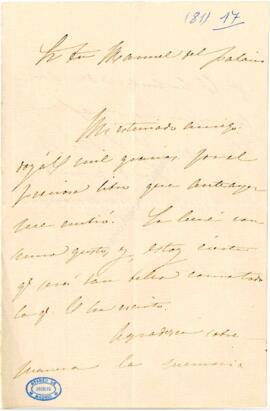 (811) 17
Sr Dn Manuel del Palacio
Mi estimado amigo
doy á V. mil gracias por el
precioso libro que anteayer
me envió. Lo leeré con
sumo gusto, y estoy cierto
q. será tan bello como todo
lo q. V. ha escrito.
Agradezco sobre
manera la memoria
ATENEO DE MADRID